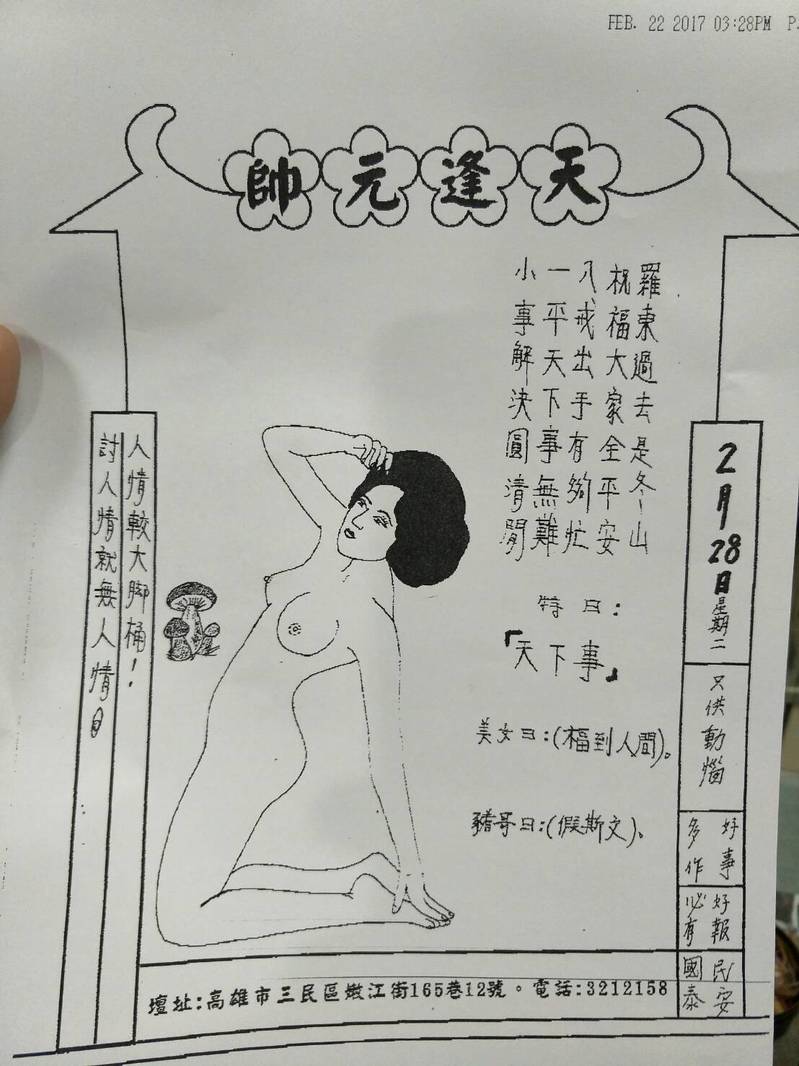 FEB. 22 2017 03:28PM P.
天逢元帥
羅東過去是冬山
祝福大家全平安
八戒出手有夠忙
一平天下事無難
小事解決圓清閒
特曰：
「天下事」
美女曰：(福到人間)。
豬哥曰：(假斯文)。
2月28日星期二
只供動惱
好事
多作
好報
必有
民安
國泰
人情較大腳桶！
討人情就無人情。
壇址:高雄市三民區嫩江街165巷12號。電話:3212158